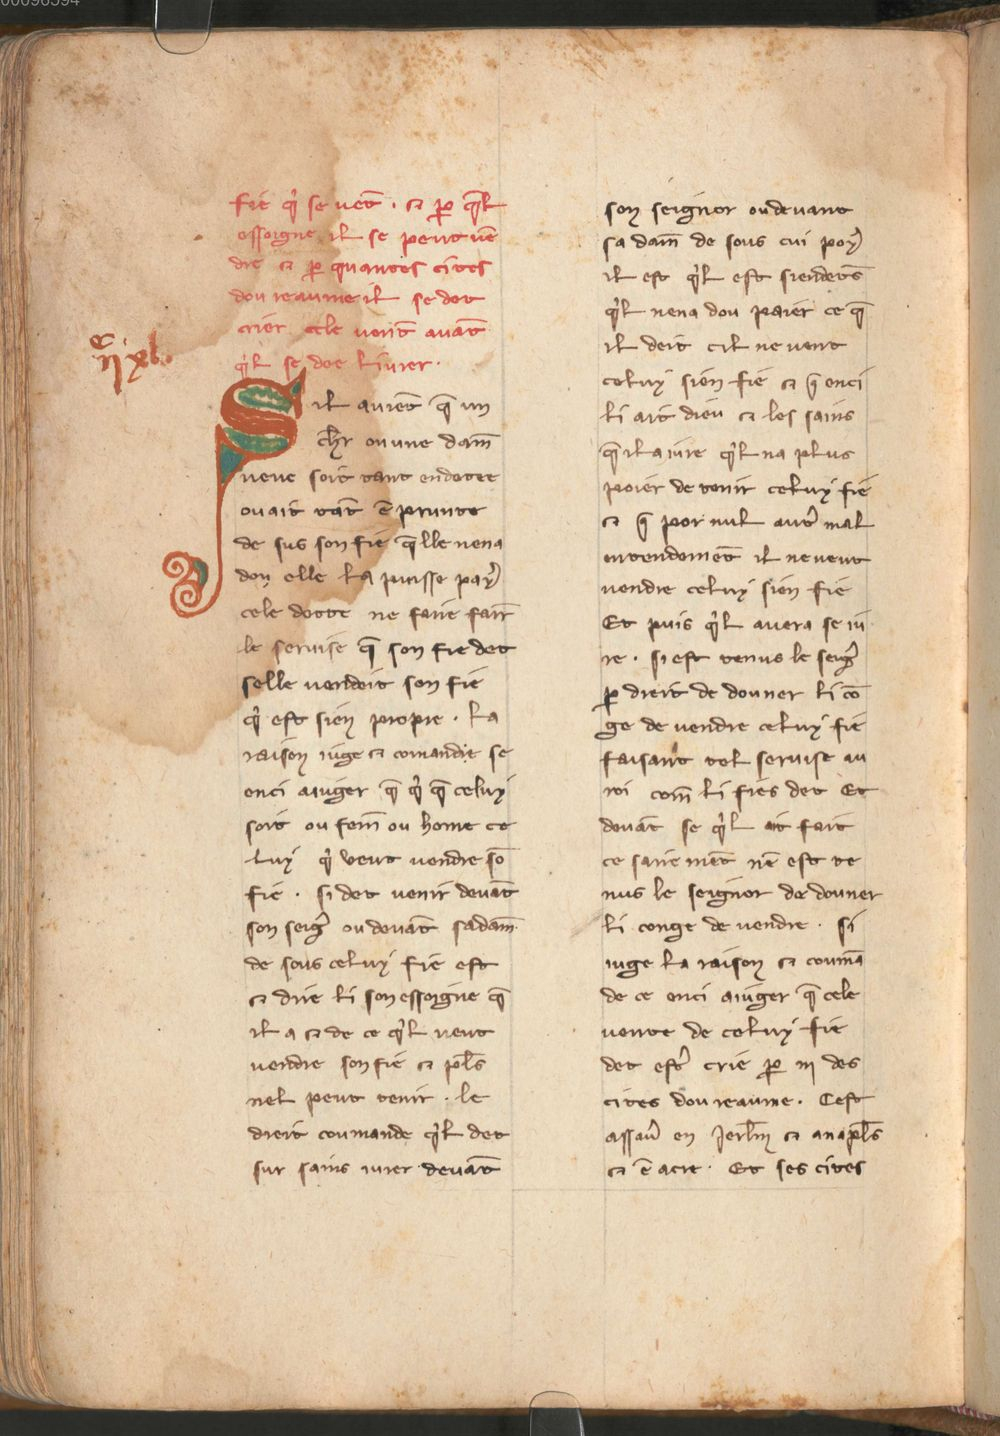 00096394
fie q̓ se uēt · ⁊ p̱ q̄l
essoigne il se peut uē
dre ⁊ p̱ quantes cites
dou reaume il se det
crier cele uent̄ auāt
q̓l se doe liurer ·
Sil auiēt q̄ un
ch̅r ou une dam̄
ueue soit tant endetee
ou ait tāt ēprunte
de sus son fie q̄lle nena
don elle la puisse pay̓
cele dette ne faire fair̄
le seruise q̄ son fie det
selle uendoit son fie
q̓ est sien propre · La
raison iuge ⁊ comande se
enci aiuger q̄ q̓ q̄ celuy
soit ou fem̄ ou home ce
luy q̓ veut uendre sō
fie · si det uenir deuāt
son seig̓ ou deuāt sa dam̄
de sous celuy fie est
⁊ dire li son essoigne q̄
il a ⁊ de ce q̓l ueut
uendre son fie ⁊ pl̄s
nel peut tenir · le
dreit coumande q̓l det
sur sains iurer deuāt
son seignor ou deuant
sa dam̄ de sous cui poy̓
il est q̓l est si endetē
q̓l nena dou paier ce q̄
il deit cil ne uent
celuy sien fie ⁊ q̄ enci
li ait dieu ⁊ les sains
q̄ il a iure q̓l na plus
poier de tenir celuy fie
⁊ q̄ por nul aut̓ mal
entendemēt il ne ueut
uendre celuy sien fie
Et puis q̓l auera se iu
re · si est tenus le seig̓
p̱ dreit de douner li cō
ge de uendre celuy fie
faisant tel seruise au
roi com̄ li fies det Et
deuāt se q̓l ait fait
ce sairemēt nē est te
nus le seignor de douner
li conge de uendre · si
iuge la raison ⁊ coumā
de ce enci aiuger q̄ cele
uente de celuy fie
det est̓ crie p̱ iij des
cites dou reaume · Cest
assau̓ en Jerl̄m ⁊ a napl̄s
⁊ ē acre · Et ses cites